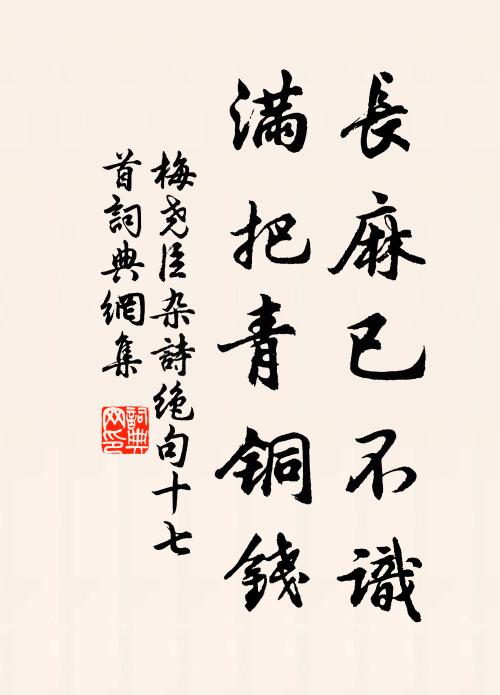 長麻已不識
滿把青銅錢
梅尧臣杂詩绝句十七
首詞典網集
詞典
网印